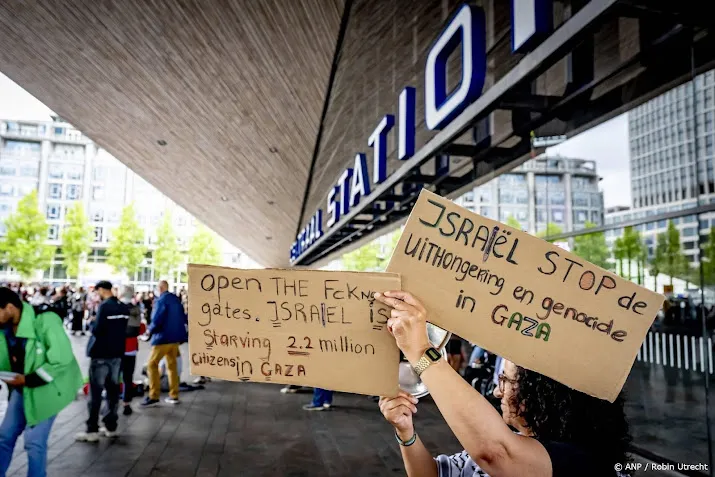 CENTRAAL STATION
OPEN THE FCKNG
gates. ISRAEL is
starving 2.2 million
Citizens in GAZA
ISRAËL STOP de
uithongering en genocide
in GAZA
© ANP / Robin Utrecht